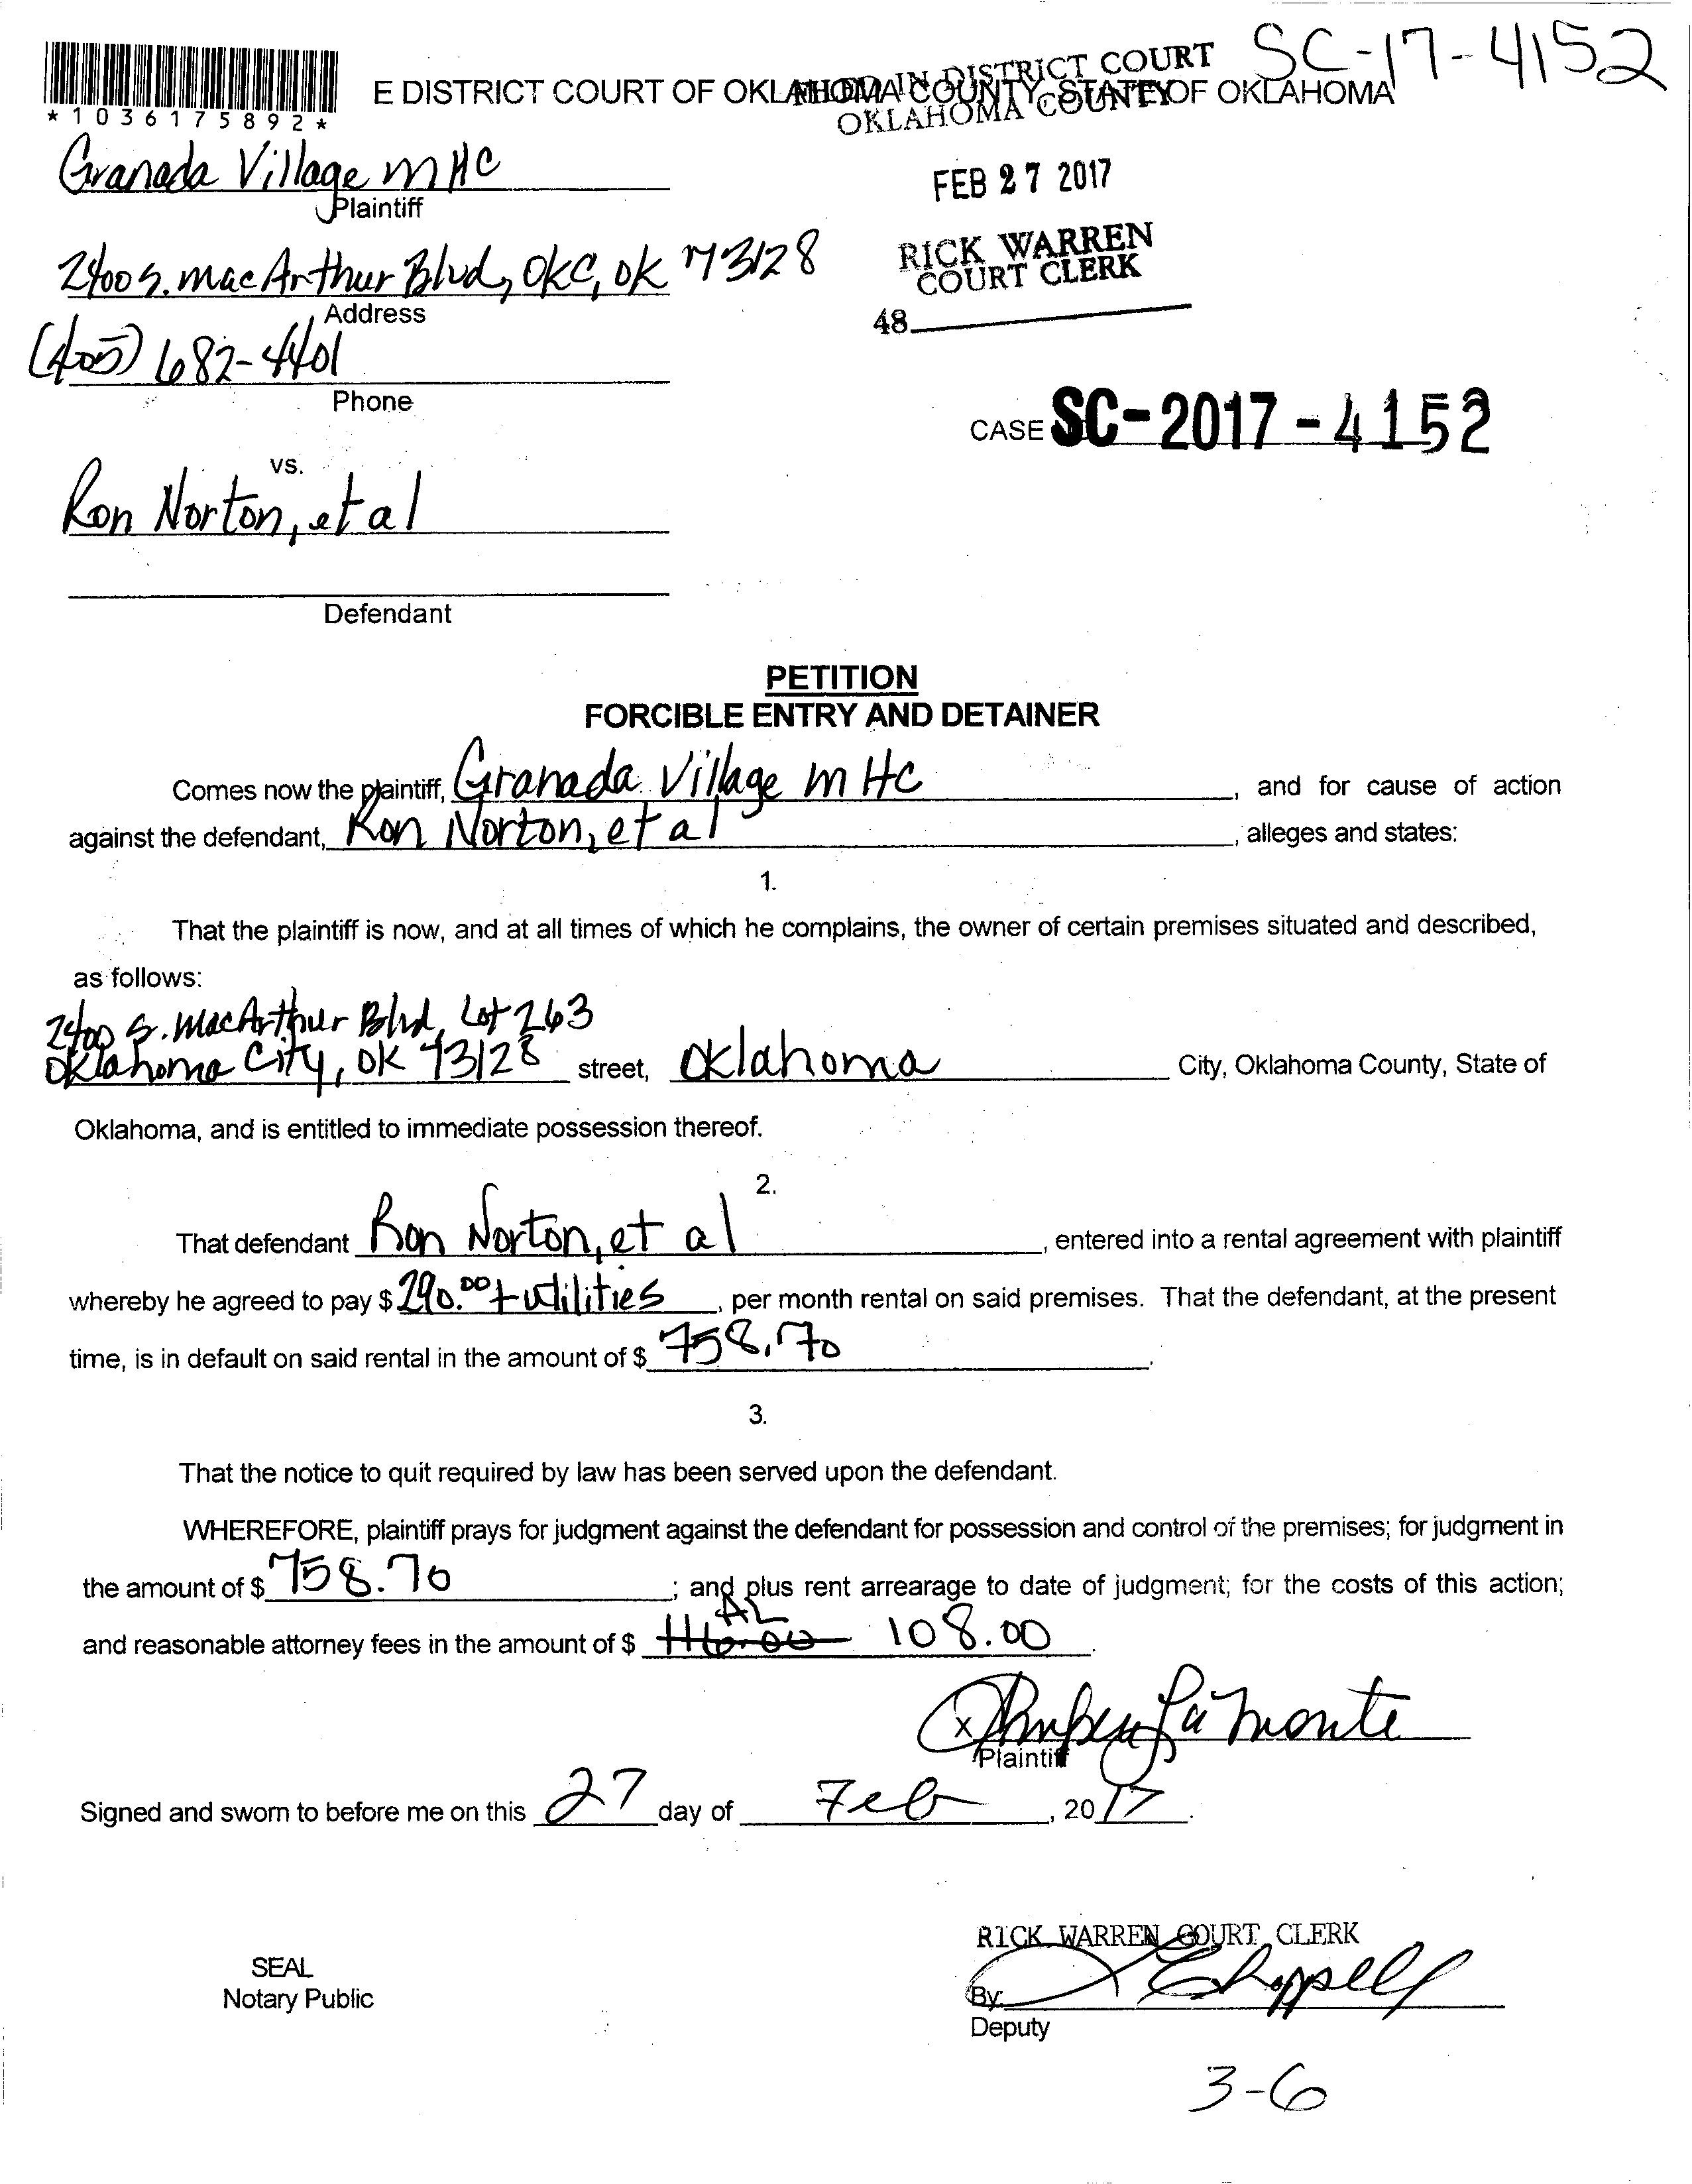 SC-17-4152
E DISTRICT COURT OF OKLAHOMA COUNTY, STATE OF OKLAHOMA
IN DISTRICT COURT
OKLAHOMA COUNTY
*1036175892*
Granada Village MHC
Plaintiff
FEB 27 2017
2400 S. MacArthur Blvd, OKC, OK 73128
Address
RICK WARREN
COURT CLERK
48
(405) 682-4401
Phone
CASE SC-2017-4152
vs.
Ron Norton, et al
Defendant
PETITION
FORCIBLE ENTRY AND DETAINER
Comes now the plaintiff, Granada Village MHC, and for cause of action
against the defendant, Ron Norton, et al, alleges and states:
1.
That the plaintiff is now, and at all times of which he complains, the owner of certain premises situated and described,
as follows:
2400 S. MacArthur Blvd, Lot 263
Oklahoma City, OK 73128 street, Oklahoma City, Oklahoma County, State of
Oklahoma, and is entitled to immediate possession thereof.
2.
That defendant Ron Norton, et al, entered into a rental agreement with plaintiff
whereby he agreed to pay $ 290.00 + utilities, per month rental on said premises. That the defendant, at the present
time, is in default on said rental in the amount of $ 758.70.
3.
That the notice to quit required by law has been served upon the defendant.
WHEREFORE, plaintiff prays for judgment against the defendant for possession and control of the premises; for judgment in
the amount of $ 758.70; and plus rent arrearage to date of judgment; for the costs of this action;
AL
and reasonable attorney fees in the amount of $ 116.00 108.00.
x LaMonte
Plaintiff
Signed and sworn to before me on this 27 day of Feb, 2017.
RICK WARREN COURT CLERK
SEAL
Notary Public
By: Chappell
Deputy
3-6